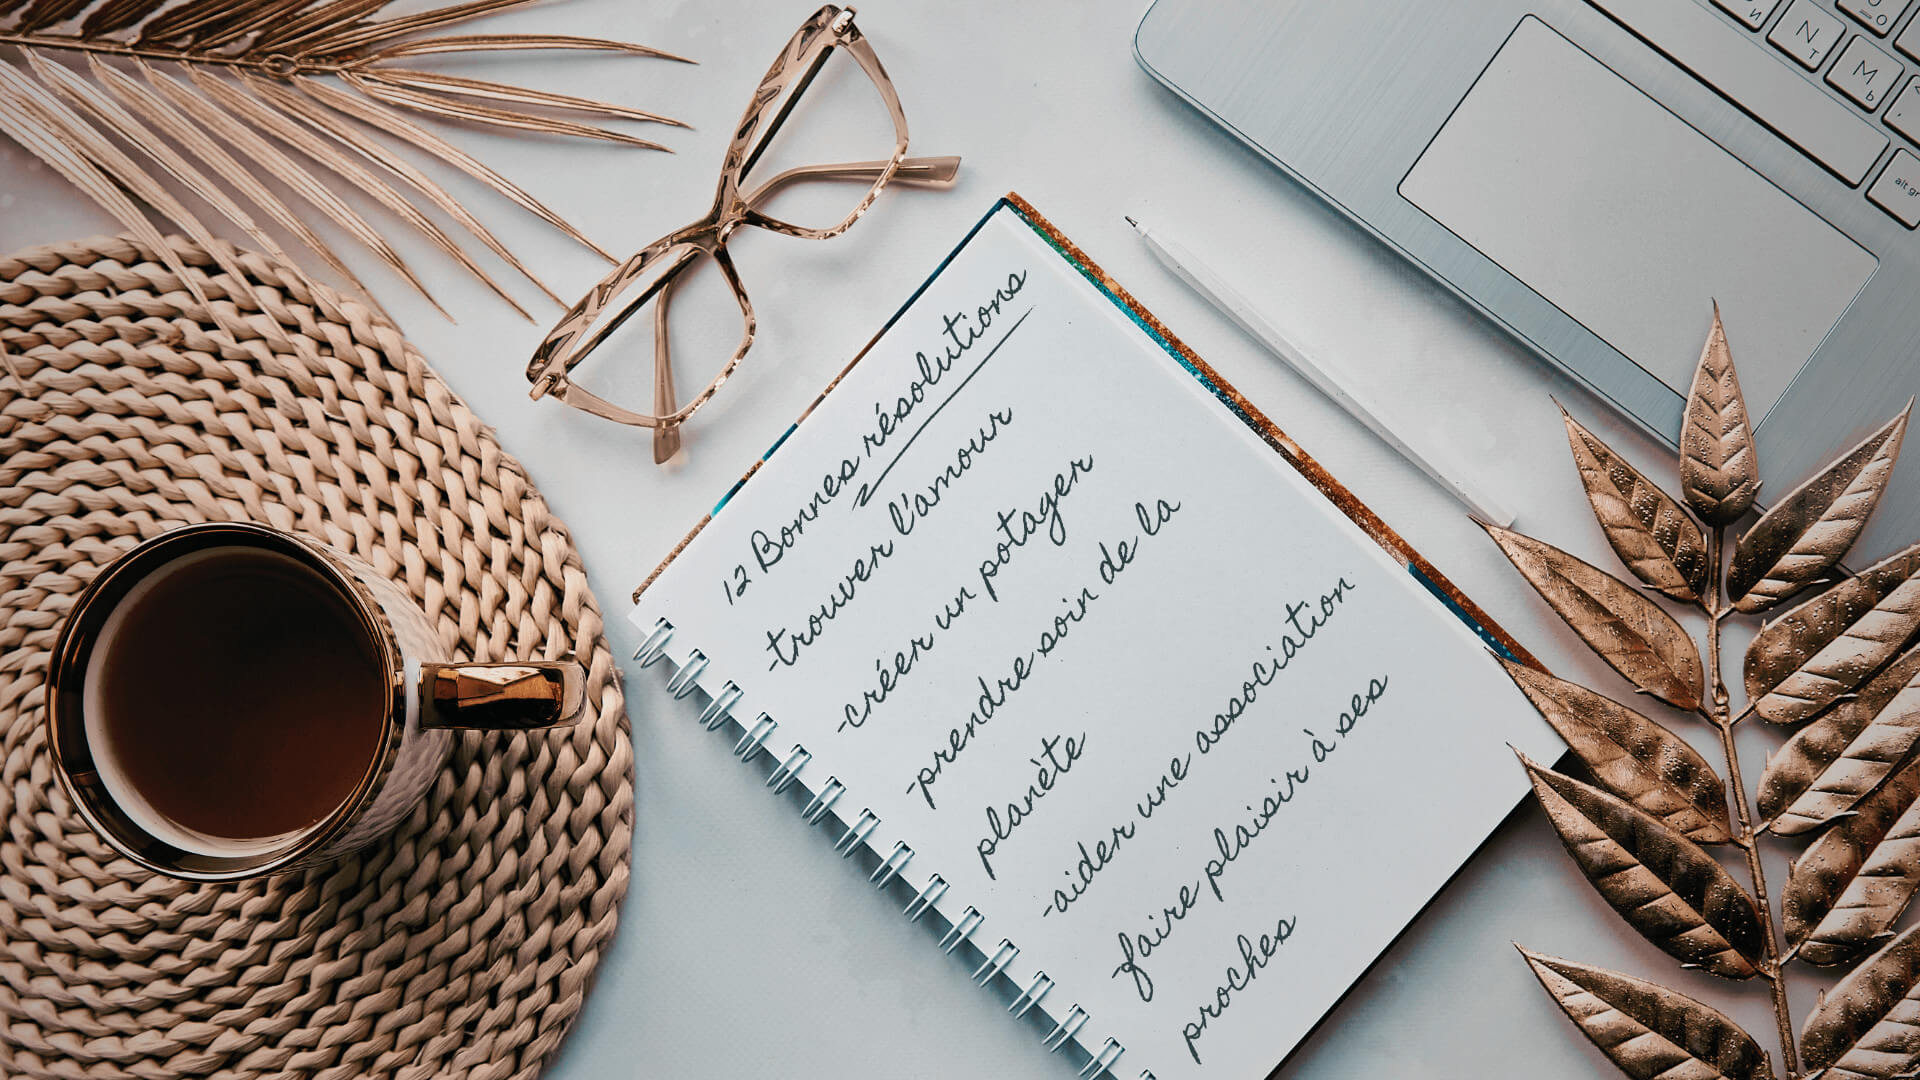 12 Bonnes résolutions
-trouver l'amour
-créer un potager
-prendre soin de la
planète
-aider une association
-faire plaisir à ses
proches
N
T
M
Ь
И
alt gr